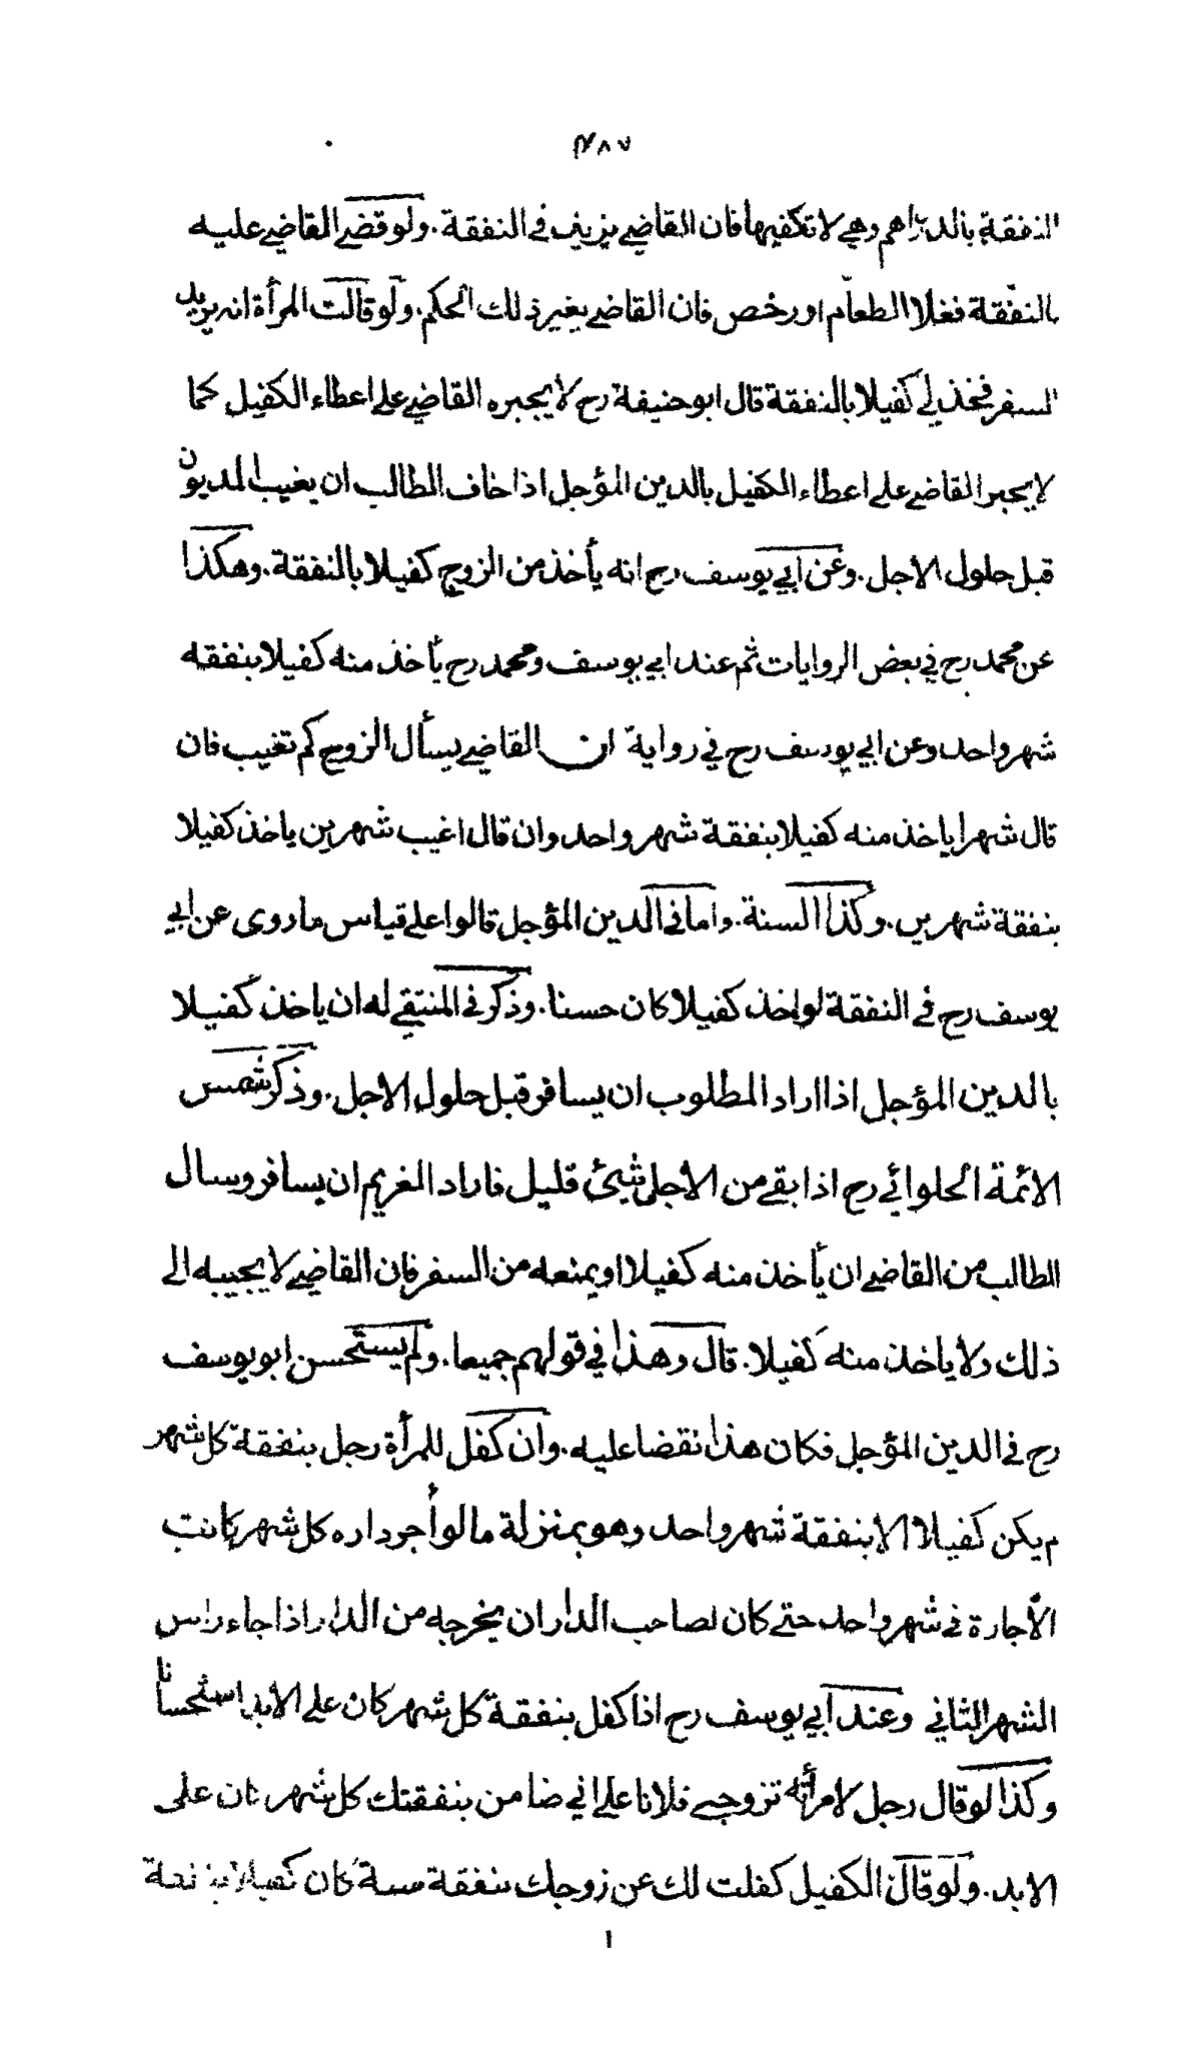 ٤٨٧
النفقة بالدراهم وهي لا تكفيها فان القاضي يزيد في النفقة. ولو قضى القاضي عليه
بالنفقة فغلا الطعام او رخص فان القاضي يغير ذلك الحكم. ولو قالت المرأة انه يريد
السفر فخذ لي كفيلا بالنفقة قال ابو حنيفة رح لا يجبره القاضي على اعطاء الكفيل كما
لا يجبر القاضي على اعطاء الكفيل بالدين المؤجل اذا خاف الطالب ان يغيب المديون
قبل حلول الاجل. وعن ابي يوسف رح انه يأخذ من الزوج كفيلا بالنفقة. وهكذا
عن محمد رح في بعض الروايات ثم عند ابي يوسف ومحمد رح يأخذ منه كفيلا بنفقه
شهر واحد وعن ابي يوسف رح في رواية ان القاضي يسأل الزوج كم تغيب فان
قال شهرا ياخذ منه كفيلا بنفقة شهر واحد وان قال اغيب شهرين ياخذ كفيلا
بنفقة شهرين. وكذا السنة. واما في الدين المؤجل قالوا على قياس ما روى عن ابي
يوسف رح في النفقة لو اخذ كفيلا كان حسنا. وذكر في المنتقى له ان ياخذ كفيلا
بالدين المؤجل اذا اراد المطلوب ان يسافر قبل حلول الاجل. وذكر شمس
الائمة الحلوائي رح اذا بقي من الأجل شيئ قليل فاراد الغريم ان يسافر وسال
الطالب من القاضي ان يأخذ منه كفيلا او يمنعه من السفر فان القاضي لا يجيبه الى
ذلك ولا ياخذ منه كفيلا. قال وهذا في قولهم جميعا. ولم يستحسن ابو يوسف
رح في الدين المؤجل فكان هذا نقضا عليه. وان كفل للمرأة رجل بنفقة كل شهر
م يكن كفيلا الا بنفقة شهر واحد وهو بمنزلة ما لو أجر داره كل شهر كانت
الأجارة في شهر واحد حتى كان لصاحب الدار ان يخرجه من الدار اذا جاء راس
الشهر الثاني وعند ابي يوسف رح اذا كفل بنفقة كل شهر كان على الابد استحسانا
وكذا لو قال رجل لامرأته تزوجي فلانا على اني ضامن بنفقتك كل شهر كان على
الابد. ولو قال الكفيل كفلت لك عن زوجك بنفقة سنة كان كفيلا بنفقة
١